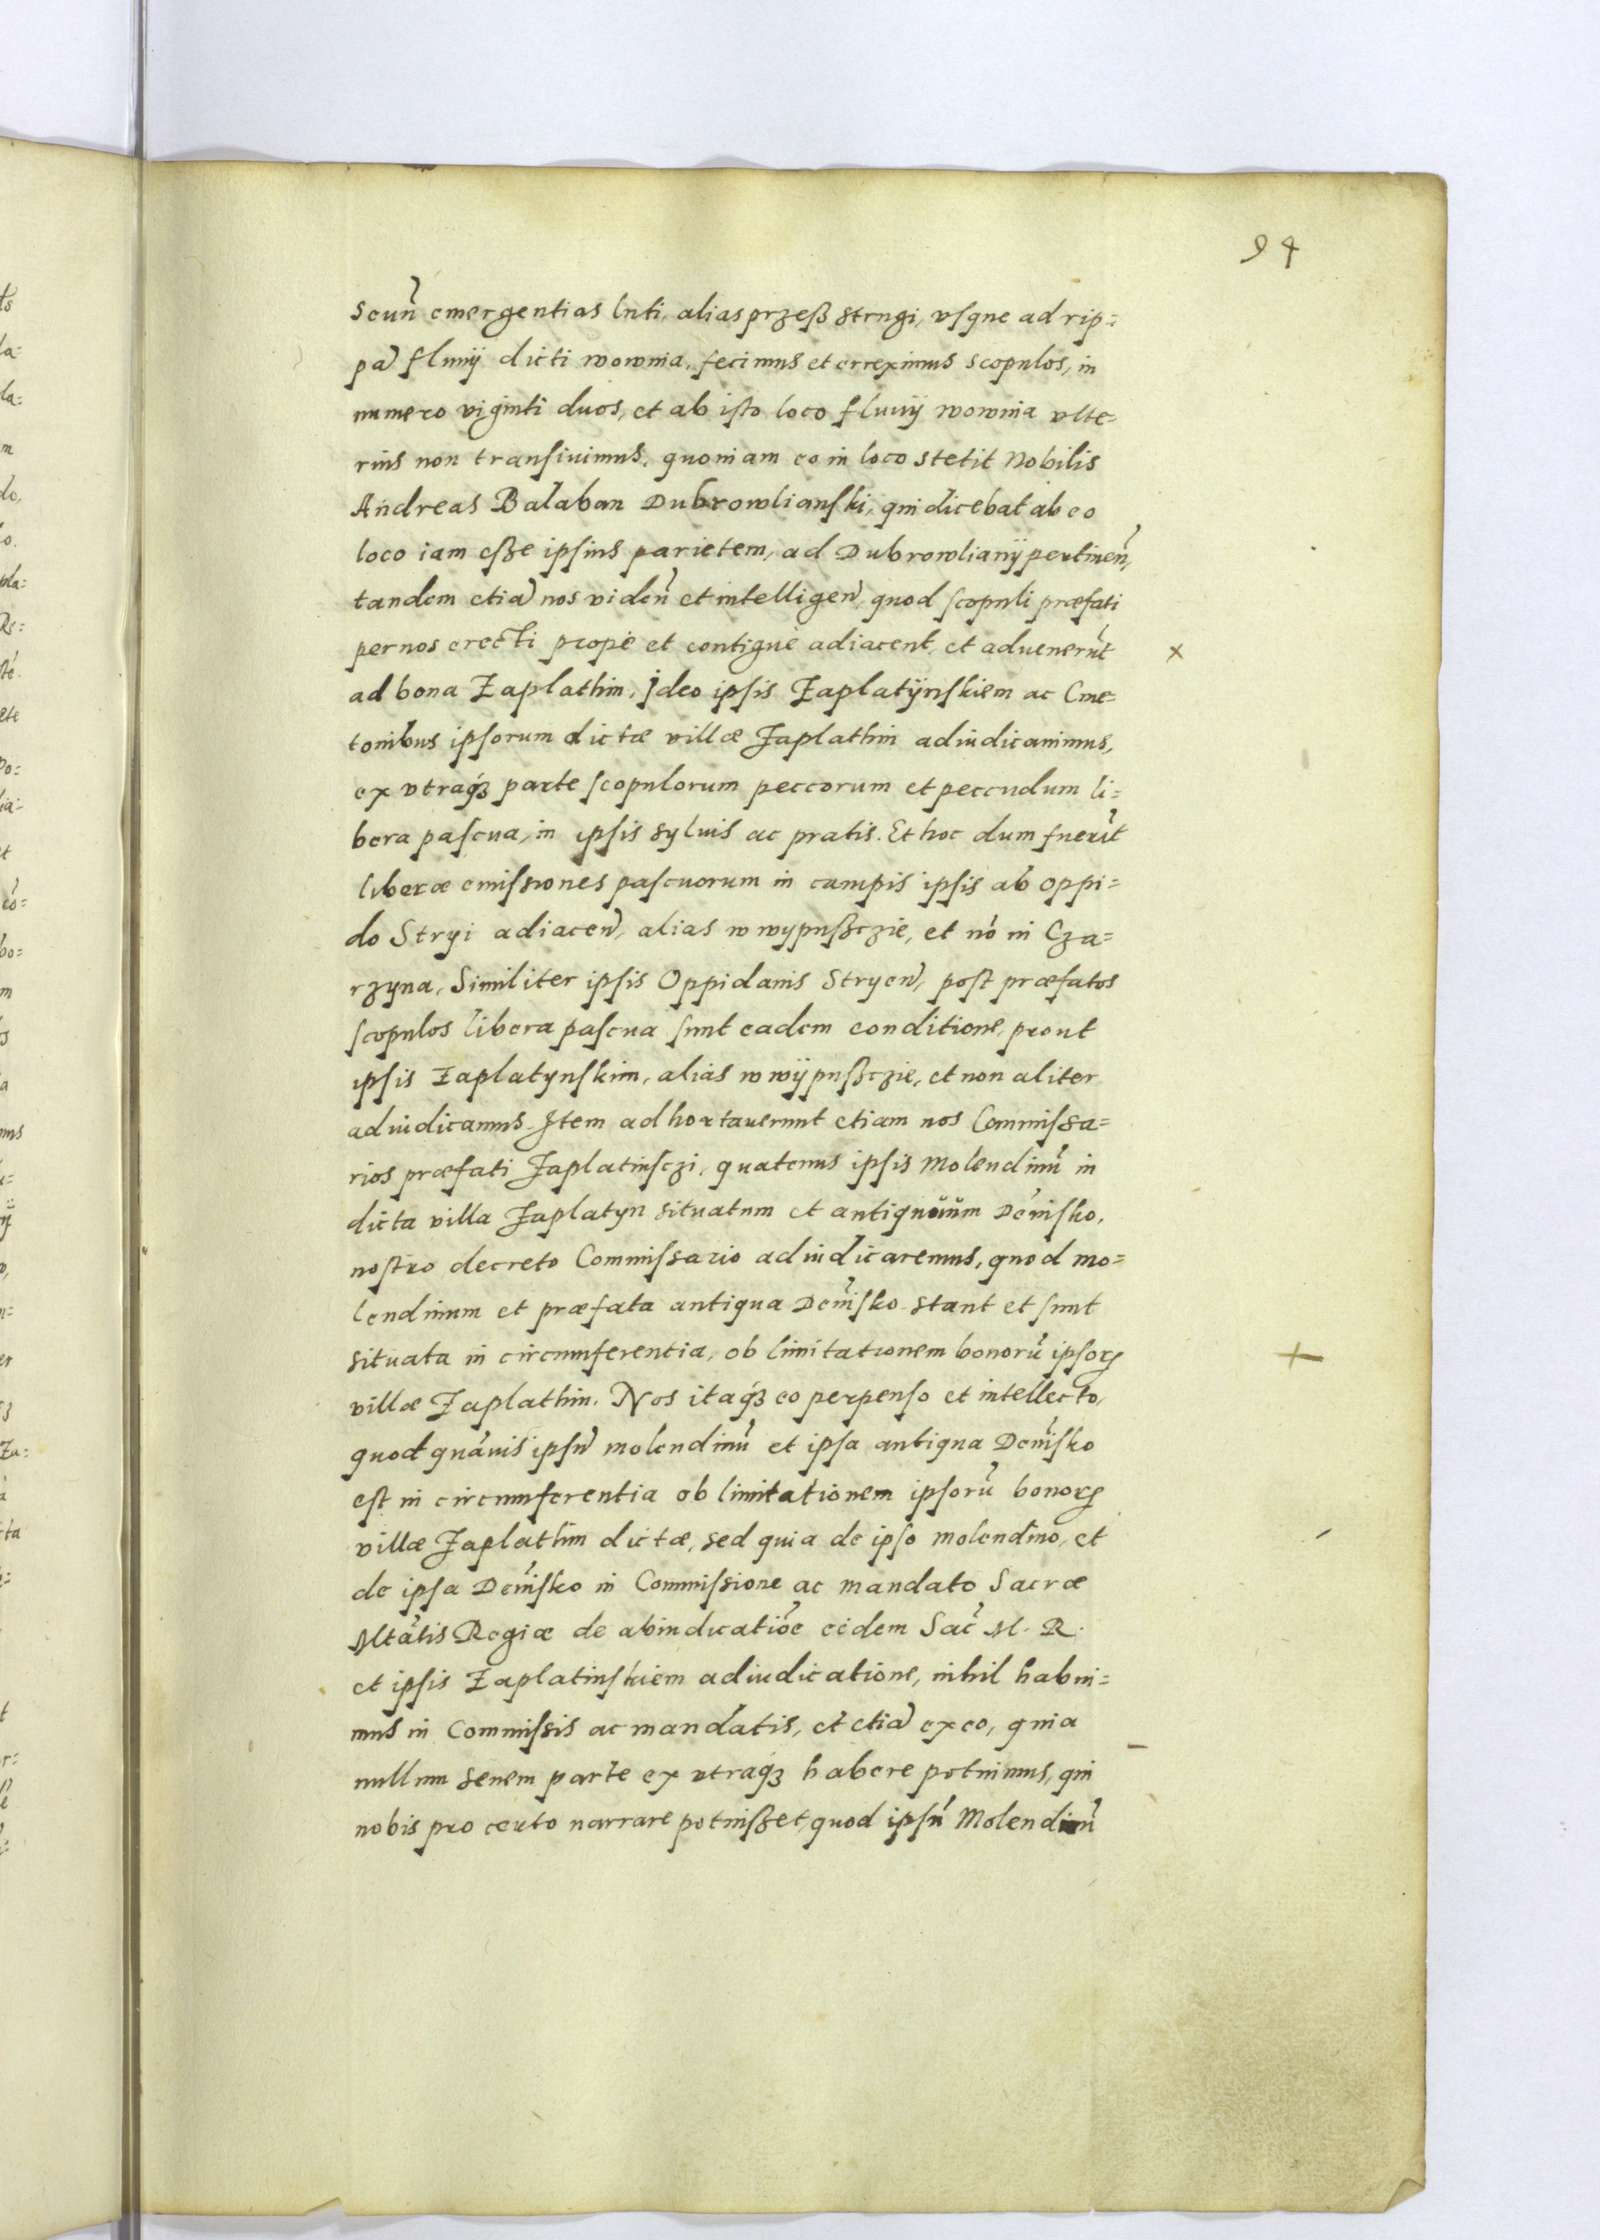 94
Secun̄ emergentias luti, alias przeß strugi, vsque ad rip=
pã fluuij dicti wownia, fecimus et erreximus scopulos, in
numero viginti duos, et ab isto loco fluuij wownia vlte-
rius non transiuimus, quoniam eo in loco stetit Nobilis
Andreas Balaban Dubrowlianski, qui dicebat ab eo
loco iam eße ipsius parietem, ad Dubrowlianÿ pertinen̄,
tandem etiã nos viden̄ et intelligen̄, quod scopuli præfati
per nos erecti propè et contiguè adiacent, et aduenerūt
ad bona Zaplathin, Ideo ipsis Zaplatÿnskiem ac Cme-
tonibus ipsorum dictæ villæ Zaplathin adiudicauimus,
ex vtraq́ꝫ parte scopulorum peccorum et peccudum li=
bera pascua, in ipsis syluis ac pratis. Et hoc dum fuerīt
liberæ emissiones pascuorum in campis ipsis ab oppi=
do Stryi adiacen̄, alias w wypußczie, et nō in Cza=
rzyna, Similiter ipsis Oppidanis Stryen̄, post præfatos
scopulos libera pascua sunt eadem conditione, prout
ipsis Zaplatynskim, alias w wÿpußczie, et non aliter
adiudicamus. Item adhortauerunt etiam nos Commissa=
rios præfati Zaplatinsczi, quatenus ipsis Molendinū in
dicta villa Zaplatyn situatum et antiquuum Dēnisko,
nostro decreto Commissario adiudicaremus, quod mo=
lendinum et præfata antiqua Dēnisko stant et sunt
situata in circumferentia, ob limitationem bonorū ipsoꝝ
villæ Zaplathin. Nos itaq́ꝫ eo perpenso et intellecto,
quod quāuis ipsū molendinū et ipsa antiqua Dēnisko
est in circumferentia ob limitationem ipsorū bonoꝝ
villæ Zaplathin dictæ, sed quia de ipso molendino, et
de ipsa Dēnisko in Commissione ac mandato Sacræ
Mtātis Regiæ de abiudicatiōe eidem Sac̄ M. R.
et ipsis Zaplatinskiem adiudicatione, nihil habui=
mus in Commissis ac mandatis, et etiã ex eo, quia
nullum senem parte ex vtraq́ꝫ habere potuimus, qui
nobis pro certo narrare potuißet, quod ipsū Molendinū